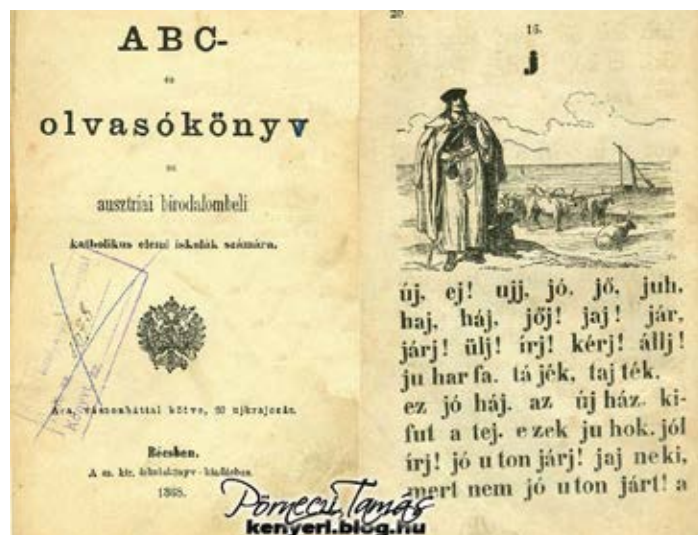 ABC-
és
olvasókönyv
az
ausztriai birodalombeli
katholikus elemi iskolák számára.
Ára, vászonháttal kötve, 20 ujkrajczár.
Bécsben.
A cs. kir. iskolakönyv-kiadásban.
1865.
20
15.
j
új, ej! ujj, jó, jő, juh,
haj, háj, jőj! jaj! jár,
járj! ülj! írj! kérj! állj!
ju har fa. tá jék, taj ték.
ez jó háj. az új ház. ki-
fut a tej. e zek ju hok. jól
írj! jó u ton járj! jaj ne ki,
mert nem jó u ton járt! a
Pörneczi Tamás
kenyeri.blog.hu